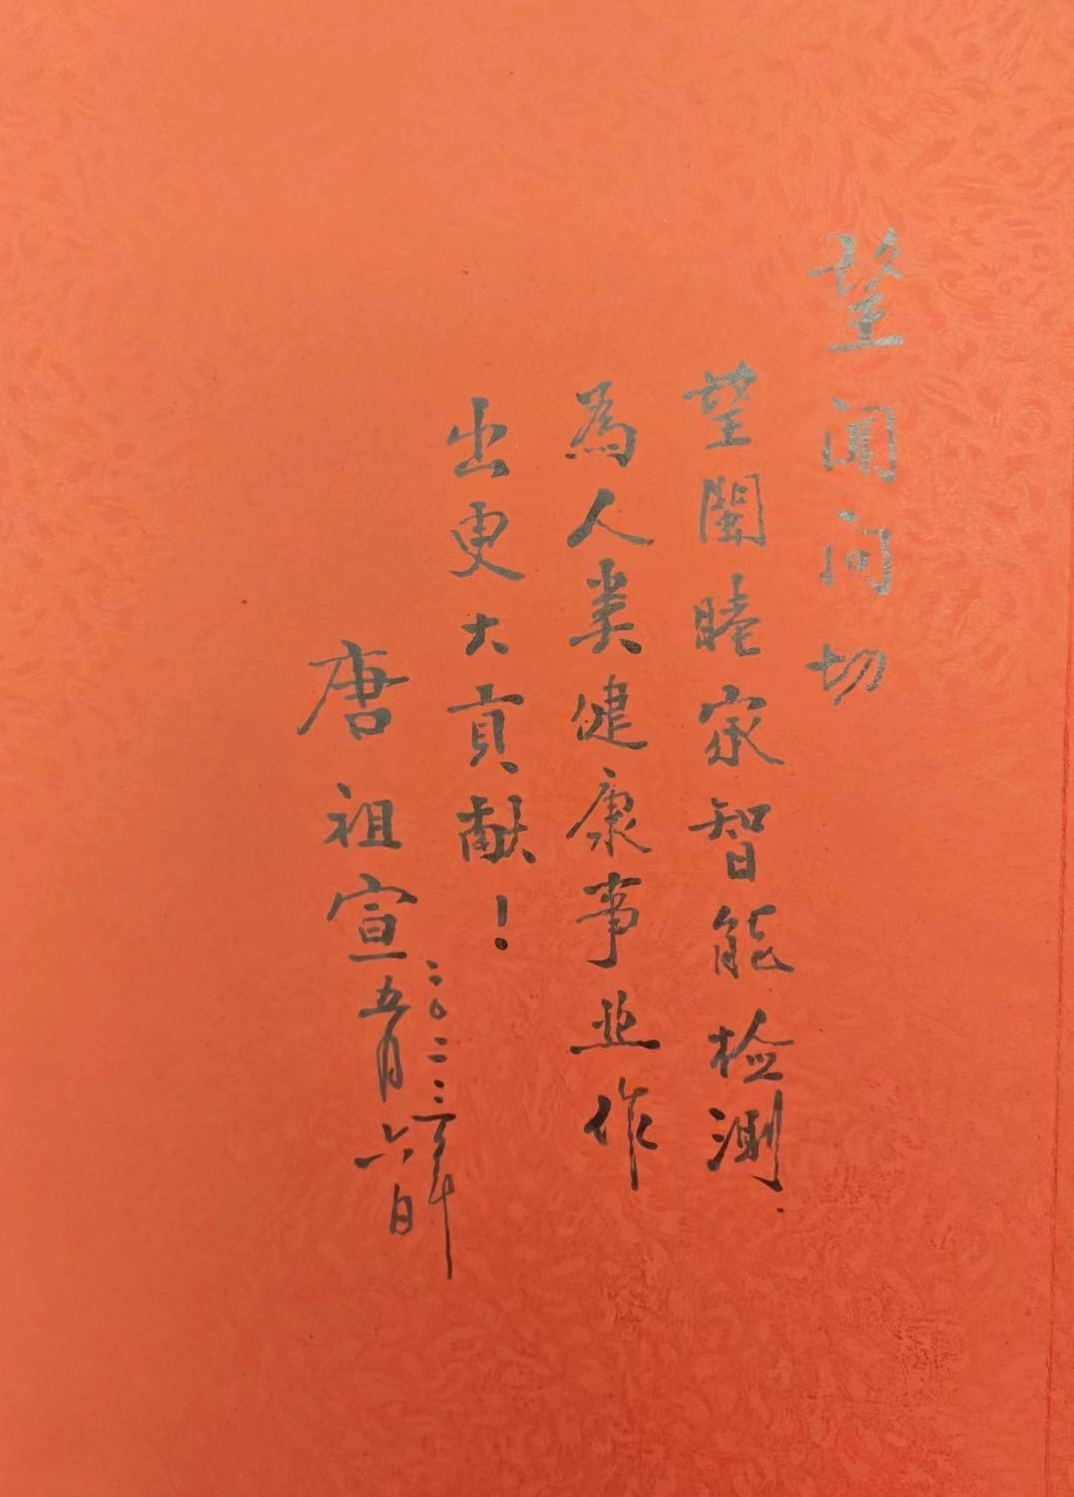 望闻问切
望闻睦家智能检测
為人类健康事业作
出更大貢献！
二〇二三年
唐祖宣五月六日